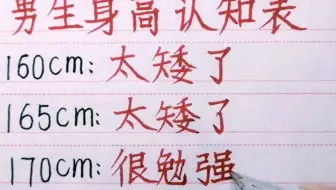 男生身高认知表
160cm: 太矮了
165cm: 太矮了
170cm: 很勉强